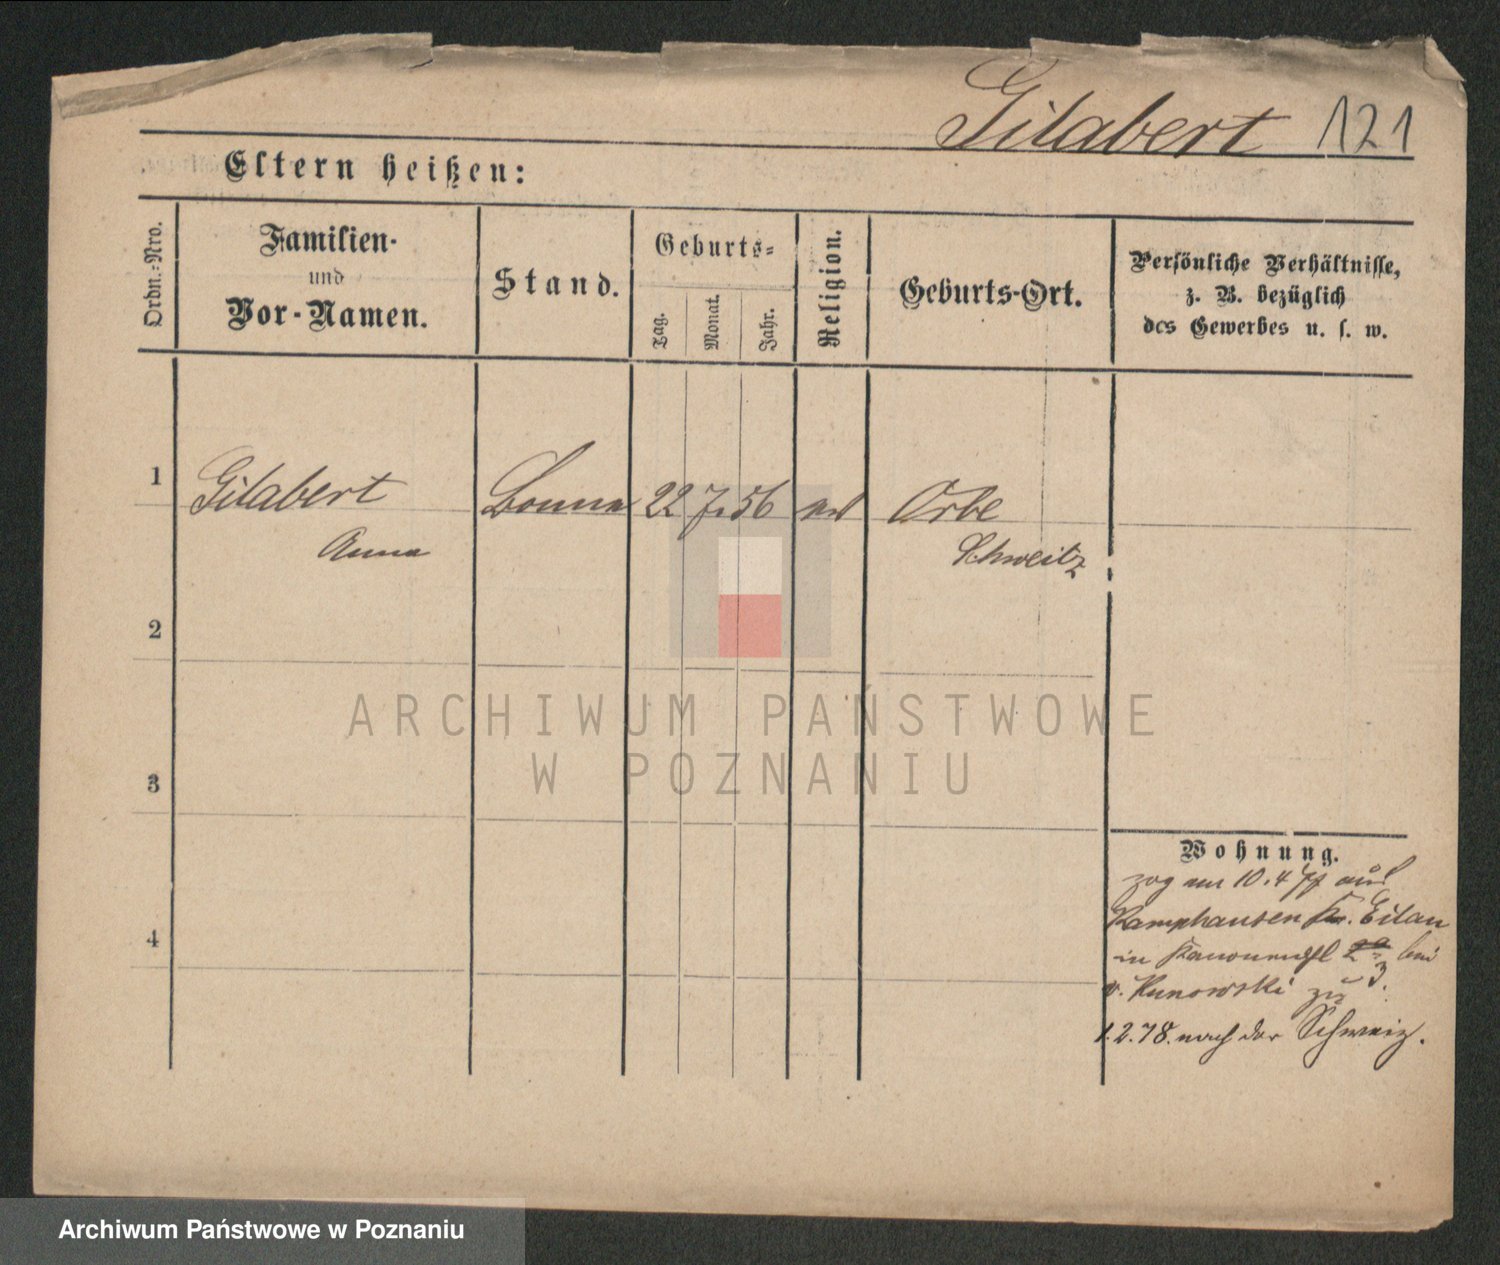 Gilabert 121
Eltern heißen:
Ordn.-Nro.
Familien-
und
Vor-Namen.
Stand.
Geburts-
Tag.
Monat.
Jahr.
Religion.
Geburts-Ort.
Persönliche Verhältnisse,
z. B. bezüglich
des Gewerbes u. s. w.
1 Gilabert Bonne 22 7. 56 Orbe
Anna Schweitz
2
3
4
Wohnung.
zog am 10. 4 77 aus
Kamphausen Kr. Eilau
in 2a bei
3.
v. Kunowski zu
1.2.78. nach der Schweiz.
ARCHIWUM PAŃSTWOWE
W POZNANIU
Archiwum Państwowe w Poznaniu